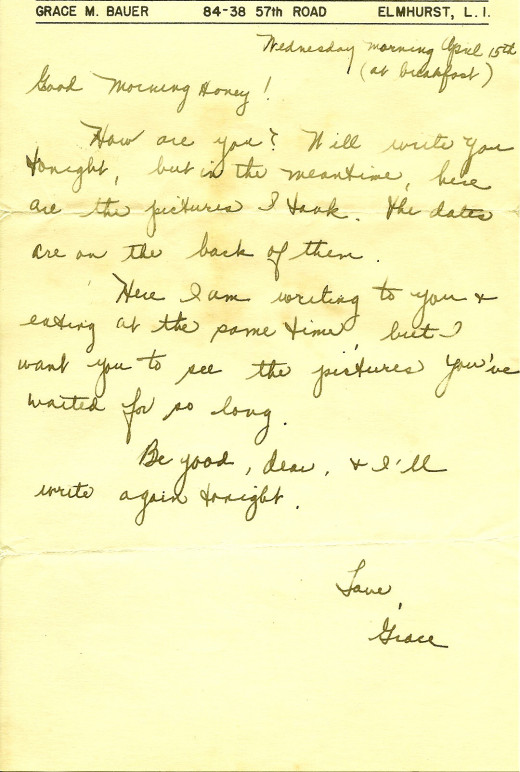 GRACE M. BAUER 84-38 57th ROAD ELMHURST, L. I.
Wednesday morning April 15th
(at breakfast)
Good Morning Honey!
How are you? Will write you
tonight, but in the meantime, here
are the pictures I took. The dates
are on the back of them.
Here I am writing to you &
eating at the same time, but I
want you to see the pictures you've
waited for so long.
Be good, dear, & I'll
write again tonight.
Love,
Grace